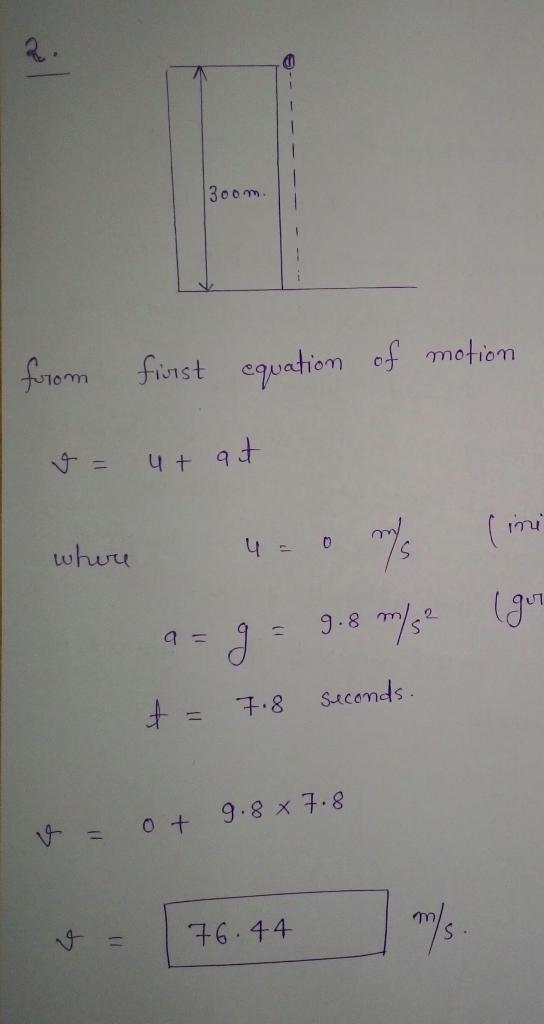 2.
300m.
from first equation of motion
v = u + at
where u = 0 m/s
a = g = 9.8 m/s²
t = 7.8 seconds.
v = 0 + 9.8 × 7.8
v = 76.44 m/s.